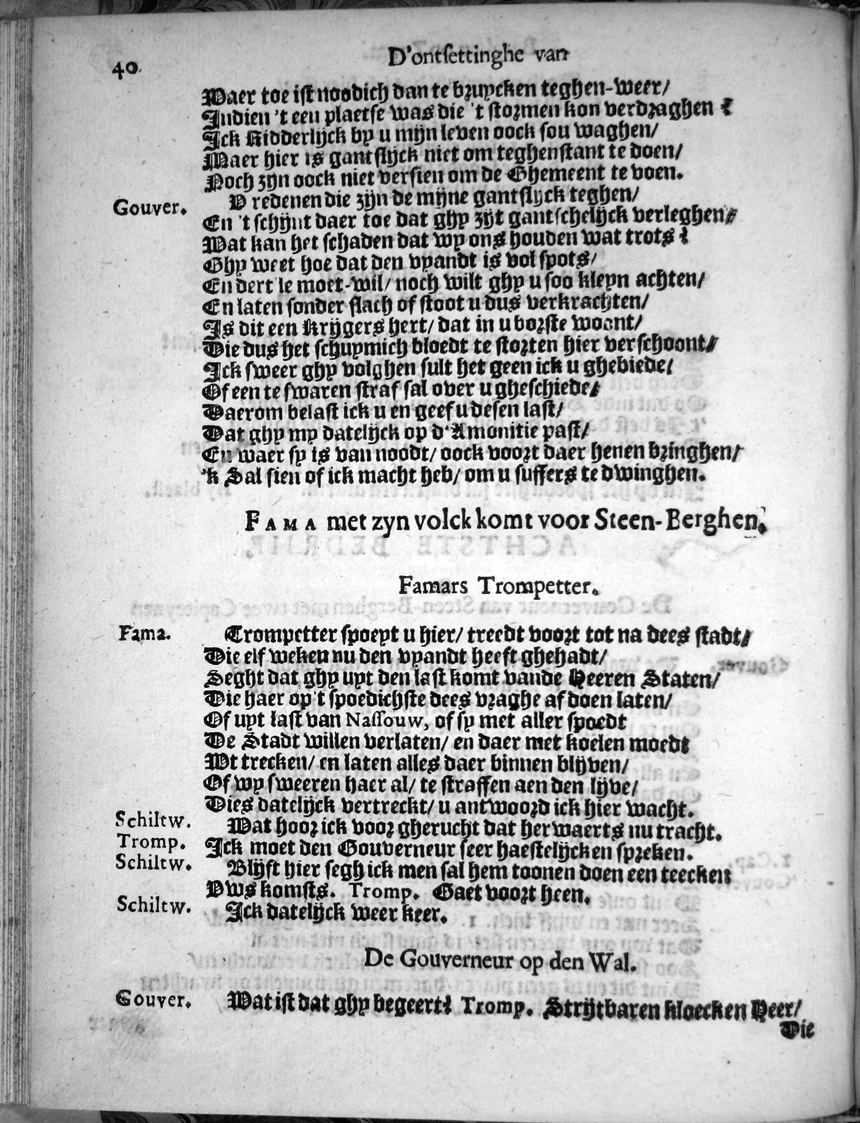 40.
D'ontsettinghe van
Waer toe ist noodich dan te bruycken teghen-weer/
Indien 't een plaetse was die 't stormen kon verdraghen?
Ick Ridderlijck by u mijn leven oock sou waghen/
Maer hier is gantslijck niet om teghenstant te doen/
Noch zijn oock niet versien om de Ghemeent te voen.
Gouver. V redenen die zijn de mijne gantslijck teghen/
En 't schijnt daer toe dat ghy zijt gantschelijck verleghen/
Wat kan het schaden dat wy ons houden wat trots?
Ghy weet hoe dat den vyandt is vol spots/
En dert'le moet-wil/ noch wilt ghy u soo kleyn achten/
En laten sonder slach of stoot u dus verkrachten/
Is dit een Krijgers hert/ dat in u borste woont/
Die dus het schuymich bloedt te storten hier verschoont/
Ick sweer ghy volghen sult het geen ick u ghebiede/
Of een te swaren straf sal over u gheschiede/
Daerom belast ick u en geef u desen last/
Dat ghy my datelijck op d'Amonitie past/
En waer sy is van noodt/ oock voort daer henen bringhen/
'k Sal sien of ick macht heb/ om u suffers te dwinghen.
FAMA met zyn volck komt voor Steen-Berghen.
Famars Trompetter.
Fama. Trompetter spoeyt u hier/ treedt voort tot na dees stadt/
Die elf weken nu den vyandt heeft ghehadt/
Seght dat ghy uyt den last komt vande Heeren Staten/
Die haer op 't spoedichste dees vraghe af doen laten/
Of uyt last van Nassouw, of sy met aller spoedt
De Stadt willen verlaten/ en daer met koelen moedt
Wt trecken/ en laten alles daer binnen blijven/
Of wy sweeren haer al/ te straffen aen den lijve/
Dies datelijck vertreckt/ u antwoord ick hier wacht.
Schiltw. Wat hoor ick voor gherucht dat herwaerts nu tracht.
Tromp. Ick moet den Gouverneur seer haestelijcken spreken.
Schiltw. Blijft hier segh ick men sal hem toonen doen een teecken
Vws komsts. Tromp. Gaet voort heen.
Schiltw. Ick datelijck weer keer.
De Gouverneur op den Wal.
Gouver. Wat ist dat ghy begeert? Tromp. Strijtbaren kloecken Heer/
Die